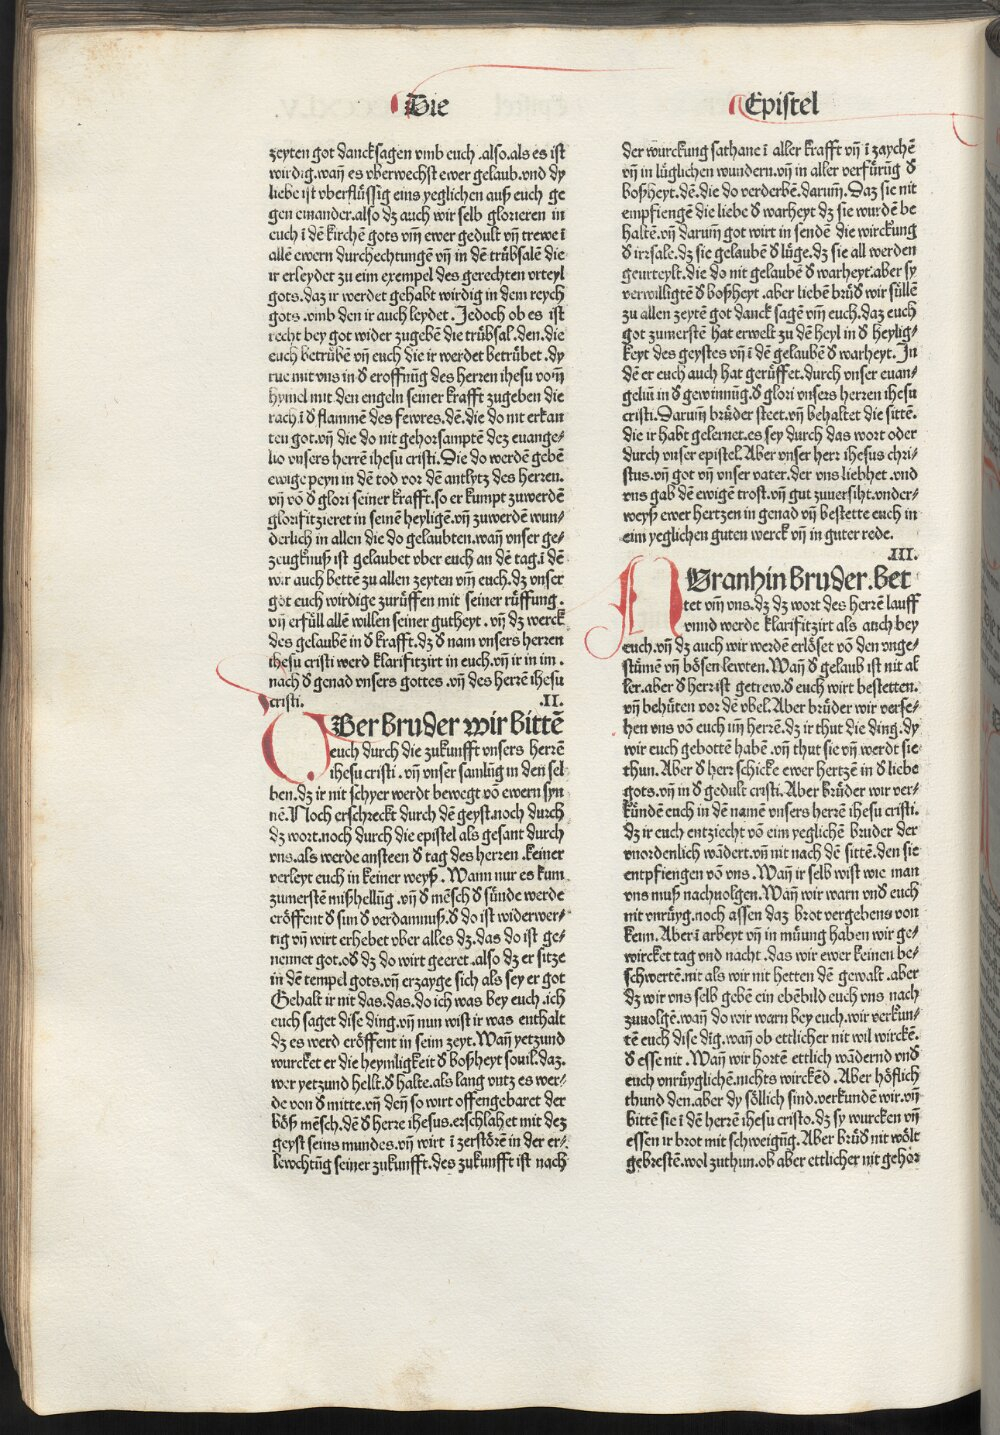 Die
Epistel
zeyten got dancksagen vmb euch .also.als es ist
wirdig.wañ es vberwechst ewer gelaub.vnd dy
liebe ist vberflüssig eins yeglichen auß euch ge
gen einander.also dz auch wir selb glorieren in
euch i dē kirchē gots vm̄ ewer gedult vñ trewe ī
allē ewern durchechtungē vñ in dē trübsalē die
ir erleydet zu eim exempel des gerechten vrteyl
gots.daz ir werdet gehabt wirdig in dem reych
gots .vmb den ir auch leydet. Jedoch ob es ist
recht bey got wider zugebē die trübsal.den.die
euch betrübē vñ euch die ir werdet betrübet .dy
rue mit vns in d̄ eroffnūg des herren ihesu vom̄
hymel mit den engeln seiner krafft zugeben die
rach.ī d̄ flammē des fewres.dē.die do nit erkan
ten got.vñ die do nit gehorsamptē dez euange⸗
lio vnsers herrē ihesu cristi.Die do werdē gebē
ewige peyn in dē tod vor dē antlytz des herren.
vñ vō d̄ glori seiner krafft.so er kumpt zuwerdē
glorifitzieret in seinē heyligē.vñ zuwerdē wun⸗
derlich in allen die do gelaubten.wañ vnser ge⸗
zeugknuß ist gelaubet vber euch an dē tag.ī dē
wir auch bettē zu allen zeyten vm̄ euch.dz vnser
got euch wirdige zurüffen mit seiner rüffung.
vñ erfüll allē willen seiner gutheyt. vñ dz werck
des gelaubē in d̄ krafft.dz d̄ nam vnsers herren
ihesu cristi werd klarifitzirt in euch.vñ ir in im .
nach d̄ genad vnsers gottes .vñ des herrē ihesu
cristi. .II.
OBer bruder wir bittē
euch durch die zukunfft vnsers herrē
ihesu cristi . vñ vnser samlūg in den sel
ben.dz ir nit schyer werdt bewegt vō ewern syn
nē.Noch erschreckt durch dē geyst.noch durch
dz wort.noch durch die epistel als gesant durch
vns.als werde ansteen d̄ tag des herren .keiner
verleyt euch in keiner weyß. Wann nur es kum
zumerstē mißhellūg .vñ d̄ mēsch d̄ sünde werde
eröffent d̄ sun d̄ verdamnuß.d̄ do ist widerwer⸗
tig vñ wirt erhebet vber alles dz.das do ist ge⸗
nennet got.od̄ dz do wirt geeret .also dz er sitze
in dē tempel gots.vñ erzayge sich als sey er got
Gehalt ir nit das.das.do ich was bey euch .ich
euch saget dise ding.vñ nun wist ir was enthalt
dz es werd eröffent in seim zeyt.Wañ yetzund
wurcket er die heymligkeit d̄ boßheyt souil.daz.
wer yetzund hellt.d̄ halte.als lang vntz es wer⸗
de von d̄ mitte.vñ deñ so wirt offengebaret der
böß mēsch.dē d̄ herre ihesus.erschlahet mit dez
geyst seins mundes.vñ wirt ī zerstörē in der er⸗
lewchtūg seiner zukunfft.des zukunfft ist nach
der wurckung sathane ī aller krafft vñ ī zaychē
vñ in lüglichen wundern.vñ in aller verfürūg d̄
boßheyt.dē.die do verderbē.darum̄.Daz sie nit
empfiengē die liebe d̄ warheyt dz sie wurdē be
haltē.vñ darum̄ got wirt in sendē die wirckung
d̄ irrsale.dz sie gelaubē d̄ lüge.dz sie all werden
geurteylt.die do nit gelaubē d̄ warheyt.aber sy
verwilligtē d̄ boßheyt .aber liebē brüd̄ wir süllē
zu allen zeytē got danck sagē vm̄ euch.daz euch
got zumerstē hat erwelt zu dē heyl in d̄ heylig⸗
keyt des geystes vñ ī dē gelaubē d̄ warheyt. In
dē er euch auch hat gerüffet.durch vnser euan⸗
geliū in d̄ gewinnūg.d̄ glori vnsers herren ihesu
cristi.Darum̄ brüder steet.vñ behaltet die sittē.
die ir habt gelernet.es sey durch das wort oder
durch vnser epistel.Aber vnser herr ihesus chri⸗
stus.vñ got vñ vnser vater.der vns liebhet .vnd
vns gab dē ewigē trost.vñ gut zuuersiht.vnder⸗
weyß ewer hertzen in genad vñ bestette euch in
eim yeglichen guten werck vñ in guter rede.
.III.
Nranhin bruder.bet
tet vm̄ vns.dz dz wort des herrē lauff
vnnd werde klarifitzirt als auch bey
euch.vñ dz auch wir werdē erlöset vō den vnge⸗
stümē vñ bösen lewten.Wañ d̄ gelaub ist nit al
ler.aber d̄ herr ist getrew.d̄ euch wirt bestetten.
vñ behüten vor dē vbel.Aber brüder wir verse⸗
hen vns vō euch im̄ herrē.dz ir thut die ding.dy
wir euch gebottē habē .vñ thut sie vñ werdt sie
thun. Aber d̄ herr schicke ewer hertzē in d̄ liebe
gots.vñ in d̄ gedult cristi.Aber brüder wir ver⸗
kündē euch in dē namē vnsers herrē ihesu cristi.
dz ir euch entziecht vō eim yeglichē bruder der
vnordenlich wādert.vñ nit nach dē sittē.den sie
entpfiengen vō vns . Wañ ir selb wist wie man
vns muß nachuolgen.Wañ wir warn vnd̄ euch
nit vnrüyg.noch assen daz brot vergebens von
keim. Aber ī arbeyt vñ in müung haben wir ge⸗
wircket tag vnd nacht .das wir ewer keinen be⸗
schwertē.nit als wir nit hetten dē gewalt .aber
dz wir vns selb gebē ein ebēbild euch vns nach
zuuolgē.wañ do wir warn bey euch.wir verkun⸗
tē euch dise dīg.wañ ob ettlicher nit wil wirckē.
d̄ esse nit . Wañ wir hortē ettlich wādernd vnd̄
euch vnrüyglichē.nichts wirckēd . Aber höflich
thund den.aber dy söllich sind.verkundē wir.vñ
bittē sie ī dē herrē ihesu cristo.dz sy wurcken vñ
essen ir brot mit schweigūg. Aber brüd̄ nit wölt
gebrestē.wol zuthun.ob aber ettlicher nit gehor